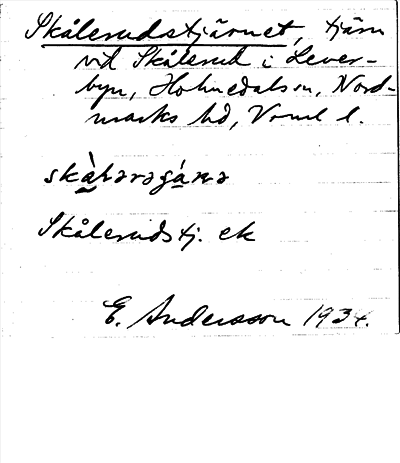 Skålerudstjärnet, tjärn
vid Skålerud i Lever-
byn, Holmedals sn, Nord-
marks hd, Vrml l.
Skålerudstj. ek
E. Andersson 1934.